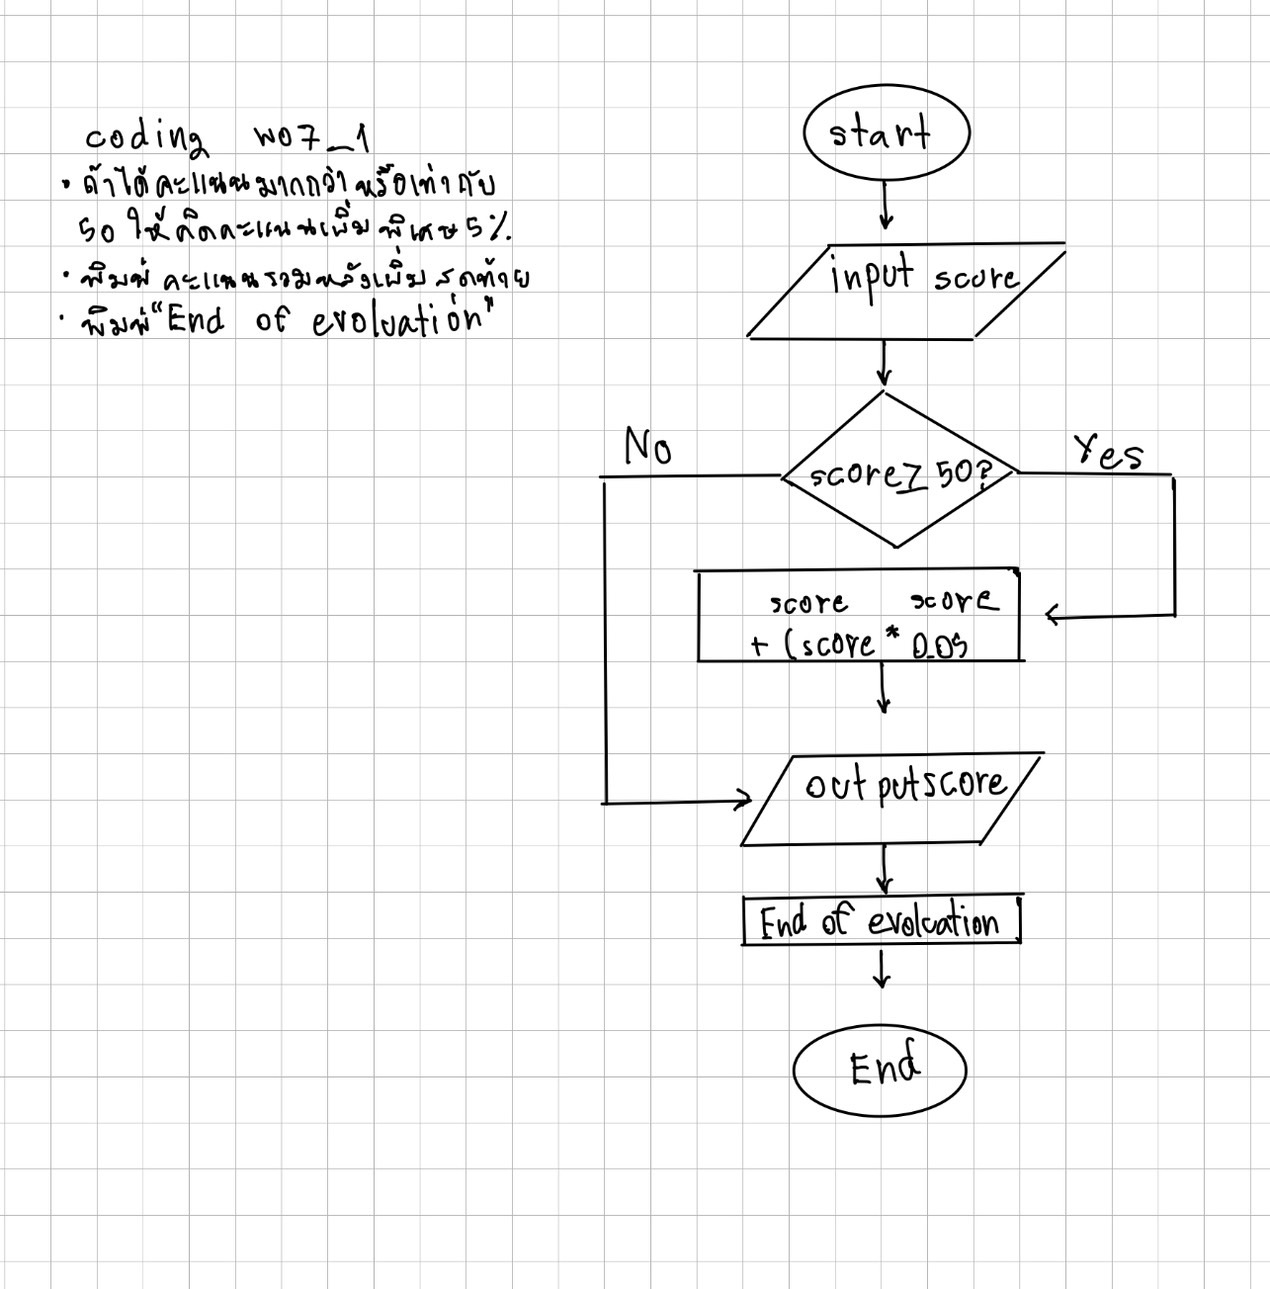 coding w07_1
• ถ้าได้คะแนนมากกว่าหรือเท่ากับ
50 ให้คิดคะแนนเพิ่มพิเศษ 5%.
• พิมพ์ คะแนนรวมหลังเพิ่มสุดท้าย
• พิมพ์ "End of evoluation"
start
input score
No
Yes
score ≥ 50?
score score
+ (score * 0.05
output score
End of evolcation
End